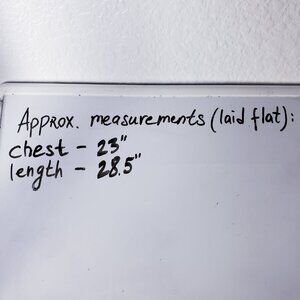 Approx. measurements (laid flat):
chest - 23"
length - 28.5"